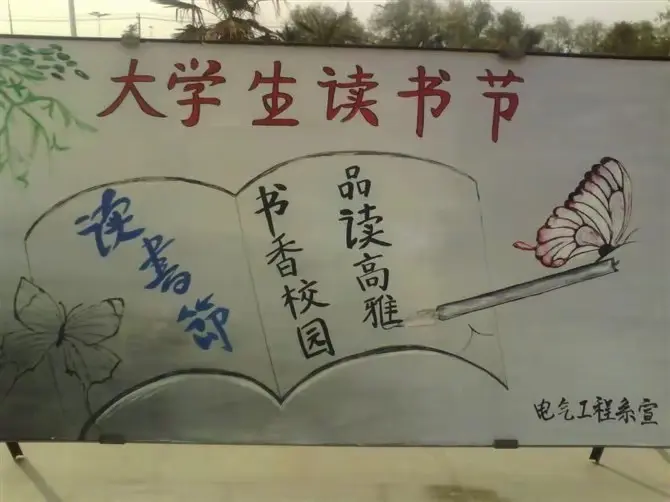 大学生读书节
读書節
品读高雅
书香校园
电气工程系宣